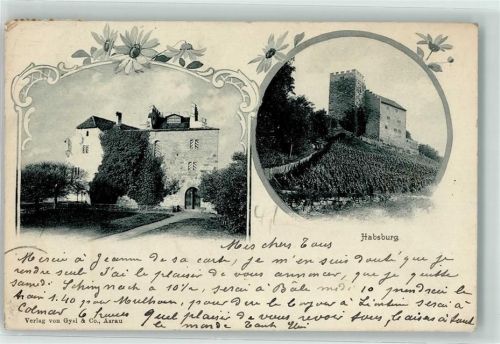 Habsburg.
Mes chers Tous
Merci à Jeanne de sa carte, je m'en suis douté que je
rendre seul J'ai le plaisir de vous annoncer, que je quitte
samedi Schinznach à 10½, serai à Bâle midi 10 prendrai le
train 1.40 pour Mulhouse, pour dire le bonjour à serai à
Colmar 6 heures Quel plaisir de vous revoir tous, baisers à tout
le monde Tante
Verlag von Gysi & Co., Aarau